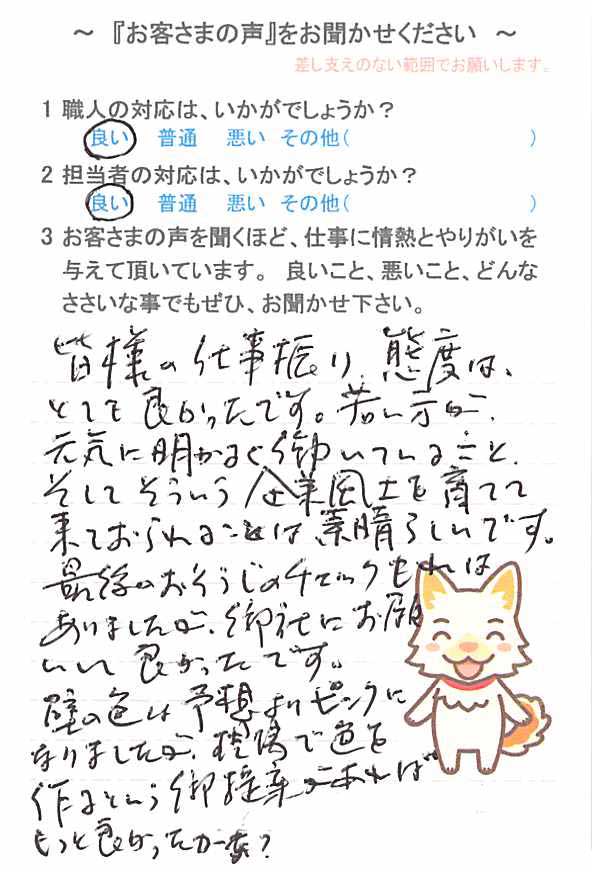 ～ 『お客さまの声』をお聞かせください ～
差し支えのない範囲でお願いします。
1 職人の対応は、いかがでしょうか？
良い 普通 悪い その他( )
2 担当者の対応は、いかがでしょうか？
良い 普通 悪い その他( )
3 お客さまの声を聞くほど、仕事に情熱とやりがいを
与えて頂いています。 良いこと、悪いこと、どんな
ささいな事でもぜひ、お聞かせ下さい。
皆様の仕事振り、態度は、
とても良かったです。若い方が、
元気に明かるく働いていること、
そしてそういう企業風土を育てて
来ておられることは素晴らしいです。
最後のおそうじのチェックもれは
ありましたが、御社にお願
いして良かったです。
壁の色は予想よりピンクに
なりましたが、現場で色を
作るという御提案があれば
もっと良かったかなぁ？